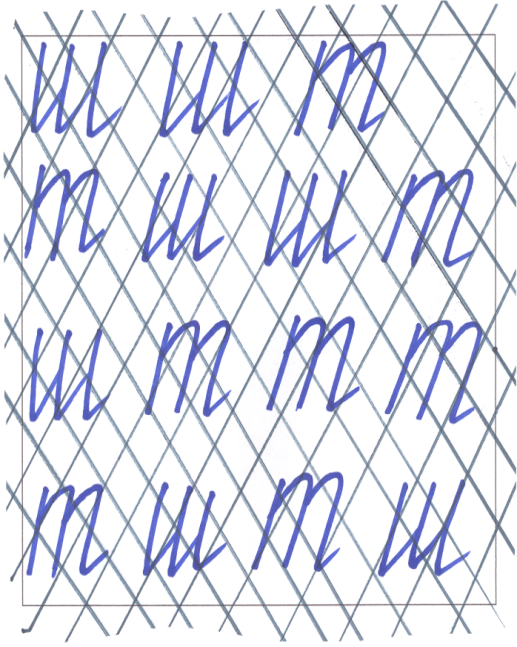 ш ш т
т ш ш т
ш т т т
т ш т ш